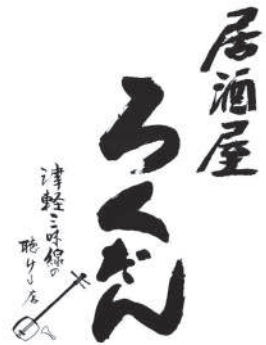 居酒屋
ろくだん
津軽三味線の
聴ける店